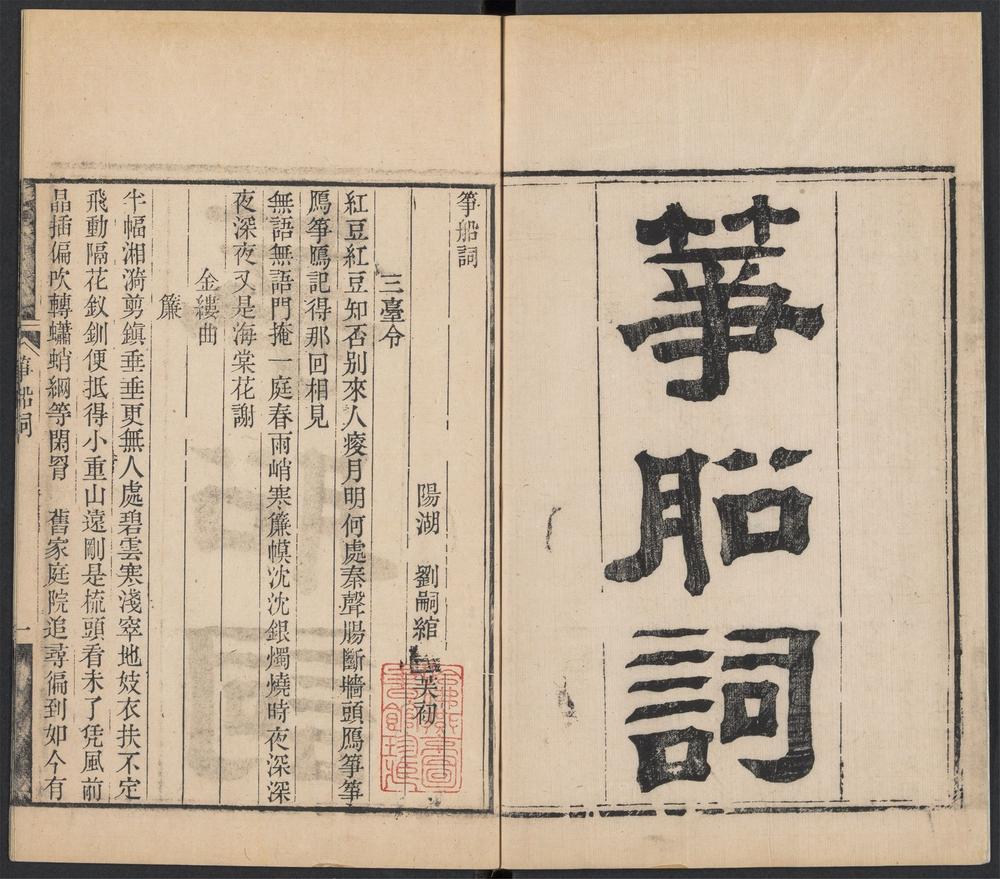 箏船詞
箏船詞
陽湖 劉嗣綰 芙初
三臺令
紅豆紅豆知否别來人瘦月明何處秦聲腸斷墻頭鴈箏箏
鴈箏鴈記得那回相見
無語無語門掩一庭春雨峭寒簾幙沈沈銀燭燒時夜深深
夜深夜又是海棠花謝
金縷曲
簾
半幅湘漪剪鎮垂垂更無人處碧雲寒淺窣地妓衣扶不定
飛動隔花釵釧便抵得小重山遠剛是梳頭看未了凭風前
晶插偏吹轉蠨蛸網等閑罥 舊家庭院追尋徧到如今有
箏船詞 一